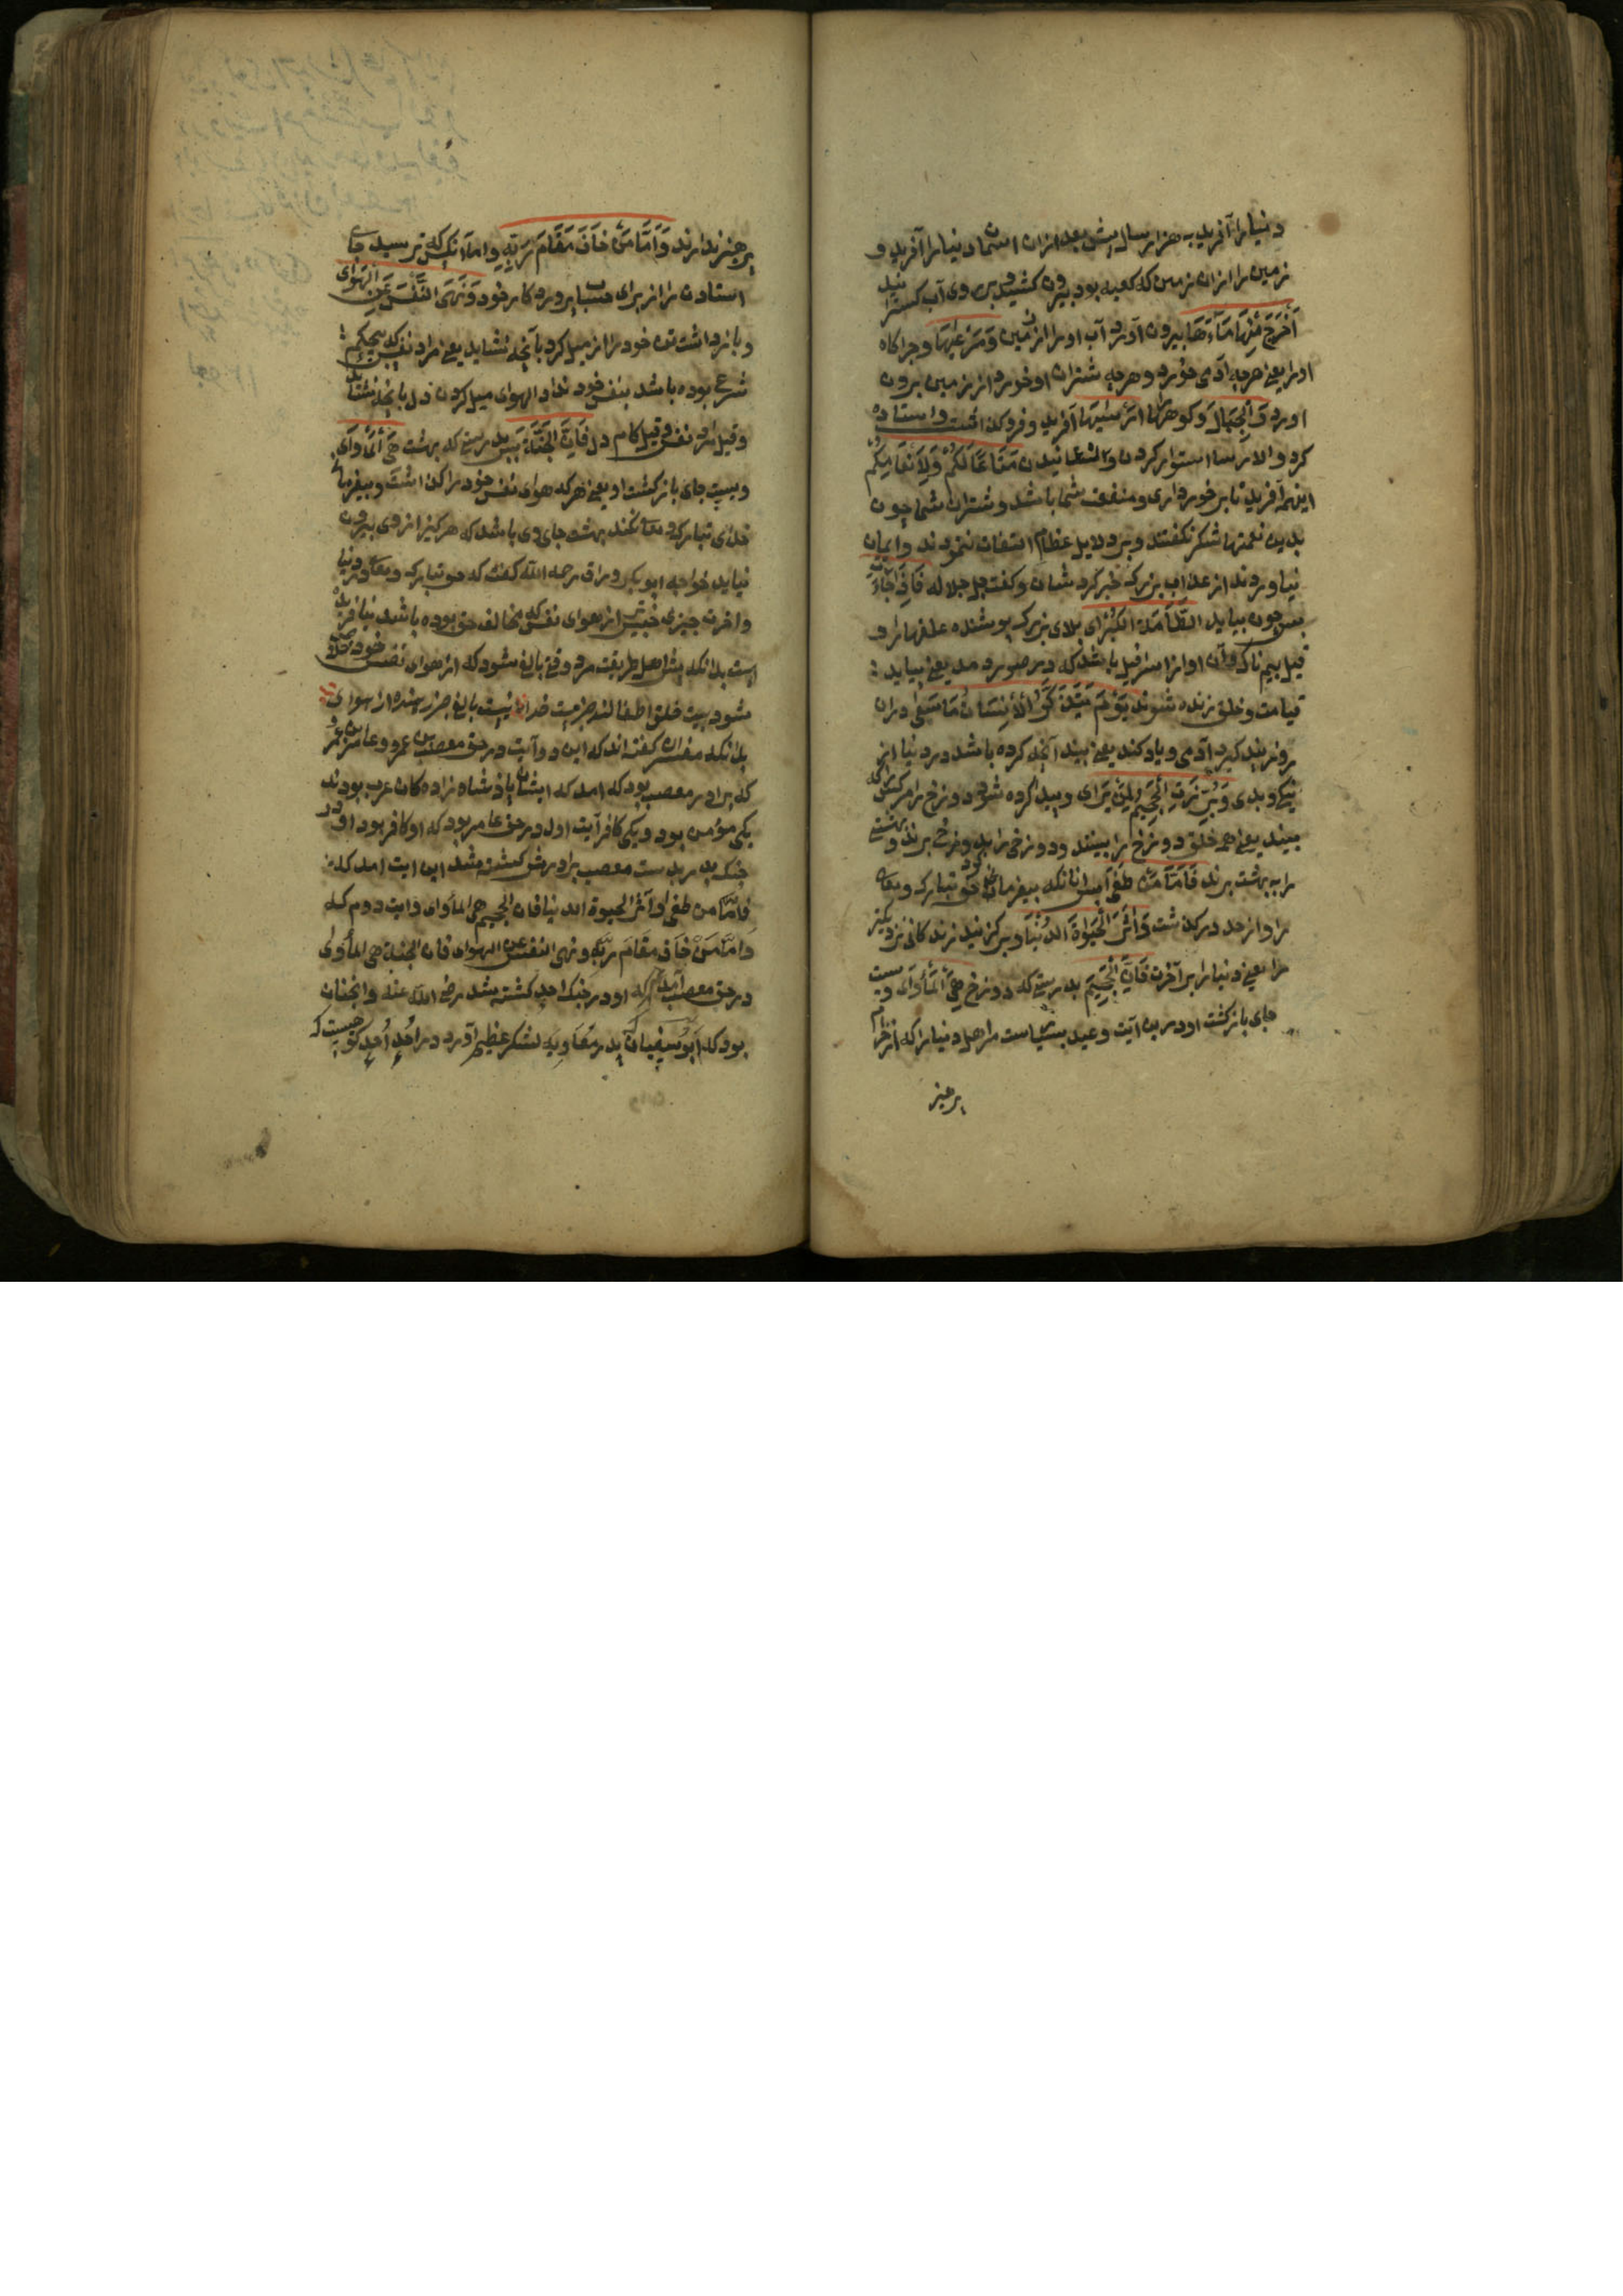 دنیا را آفرید به هزار سال پیش بعد ازان اسمان دنیا را آفرید و
زمین را ازان زمین که کعبه بود بیرون کشید و بر روی آب کسترانید
اَخْرَجَ مِنْهَا مَاءَهَا بیرون آورد آب او را از زمین وَمَرْعٰیهَا و چراکاه
او را یعنی هرچه آدمی خورد و هرچه شتران او خورد از زمین برون
اورد وَالْجِبَالَ و کوهها را اَرْسٰیهَا آفرید و فرو کذاشت و استاده
کرد والارسا استوار کردن و مَتَاعًا لَکُمْ وَلِاَنْعَامِکُمْ
اینهمه آفرید تا برخورداری و منفعت شما باشد و شتران شما چون
بدین نعمتها شکر نکفتند و برین دلایل عظام التفات ننمودند و ایمان
نیاوردند از عذاب بزرک خبر کرد شان و کفت جل جلاله فَاِذَا جَآءَتِ
پس چون بیاید الطَّآمَّةُ الْکُبْرٰی بلای بزرک پوشنده عقلها را و
قیل بیم ناک و آن اواز اسرافیل باشد که در صور دمد یعنی بیاید
قیامت و خلق زنده شوند یَوْمَ یَتَذَکَّرُ الْاِنْسَانُ مَا سَعٰی دران
روز پند کیرد آدمی و یاد کند یعنی بیند آنچه کرده باشد در دنیا از
نیکی و بدی وَبُرِّزَتِ الْجَحِیمُ لِمَنْ یَرٰی و پیدا کرده شود دوزخ مر هرکس که
ببیند یعنی همه خلق دوزخ را ببینند و دوزخی را بدوزخ برند و بهشتی
را به بهشت برند فَاَمَّا مَنْ طَغٰی پس انانکه بیفرمانی کرد حق تبارک و تعالی
را و از حد درکذشت وَاٰثَرَ الْحَیٰوةَ الدُّنْیَا و برکزید زندکانی نزدیکتر
را یعنی دنیا را بر آخرت فَاِنَّ الْجَحِیمَ بدرستی که دوزخ هِیَ الْمَأْوٰی ویست
جای بازکشت او درین آیت وعید بسیاست مر اهل دنیا را که از حرام
پرهیز
پرهیز ندارند وَاَمَّا مَنْ خَافَ مَقَامَ رَبِّهِ و اما انکس که ترسید جای
استادن را از برای حساب پروردکار خود وَنَهَی النَّفْسَ عَنِ الْهَوٰی
و بازداشت تن خود را از میل کرد بآنچه نشاید یعنی مراد نفس که بی حکم
شرعی بوده باشد بنفس خود نداد الهوای میل کردن دل بانچه نشاید
وقیل مراد نفس وقیل کام دل فَاِنَّ الْجَنَّةَ پس بدرستی که بهشت هِیَ الْمَأْوٰی
ویست جای بازکشت او یعنی هرکه هوای نفس خود را کذاشت و بیفرمانی
خدای تبارک و تعالی نکند بهشت جای وی باشد که هرکز از وی بیرون
نیاید خواجه ابو بکر وراق رحمه الله کفت که حق تبارک و تعالی در دنیا
و اخرت چیزی خبیث تر از هوای نفس که مخالف حق بوده باشد نیافریده
است بدانکه پیش اهل طریقت مرد وقتی بالغ شود که از هوای نفس خود خلاص
شود بیت خلق اطفالند جز مست خدا نیست بالغ جز رهنده از هوای
بدانکه مفسران کفته اند که این دو آیت در حق مصعب بن عمر و عامر بن عمر
که برادر مصعب بود که امد که ایشان پادشاه زاده کان عرب بودند
یکی مؤمن بود و یکی کافر آیت اول در حق عامر بود که او کافر بود او در
جنک بدر بدست مصعب برادرش کشته شد این ایت امد که
فَاَمَّا من طغی و اٰثر الحیوة الدنیا فان الجحیم هی المأوی و ایت دوم که
وَاَمَّا مَنْ خَافَ مَقَامَ رَبِّهِ و نهی النفس عن الهوی فان الجنة هی المأوی
در حق مصعب آمد که او در جنک احد کشته شد رضی الله عنه و انچنان
بود که اَبُوسُفْیَان پدر مُعَاوِیَه لشکر عظیم آورد در اُحُد اُحُد کوهیست که